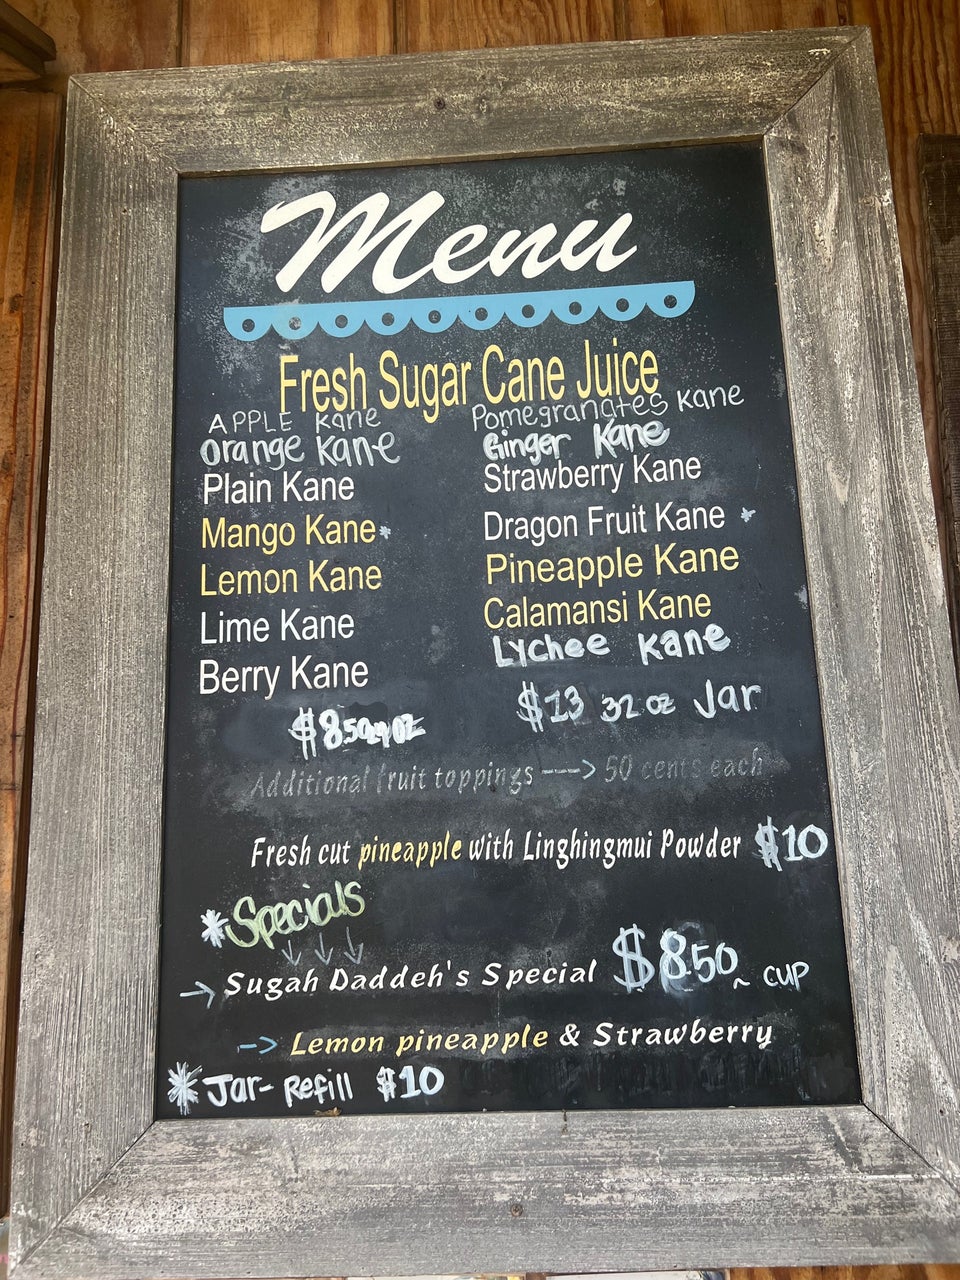 Menu
Fresh Sugar Cane Juice
APPLE Kane
Orange Kane
Plain Kane
Mango Kane*
Lemon Kane
Lime Kane
Berry Kane
$8.50
Pomegranates Kane
Ginger Kane
Strawberry Kane
Dragon Fruit Kane *
Pineapple Kane
Calamansi Kane
Lychee Kane
$13 32 oz Jar
Additional fruit toppings ---> 50 cents each
Fresh cut pineapple with Linghingmui Powder $10
*Specials
↓ ↓ ↓
→ Sugah Daddeh's Special $8.50 ~ CUP
-> Lemon pineapple & Strawberry
* Jar- Refill $10